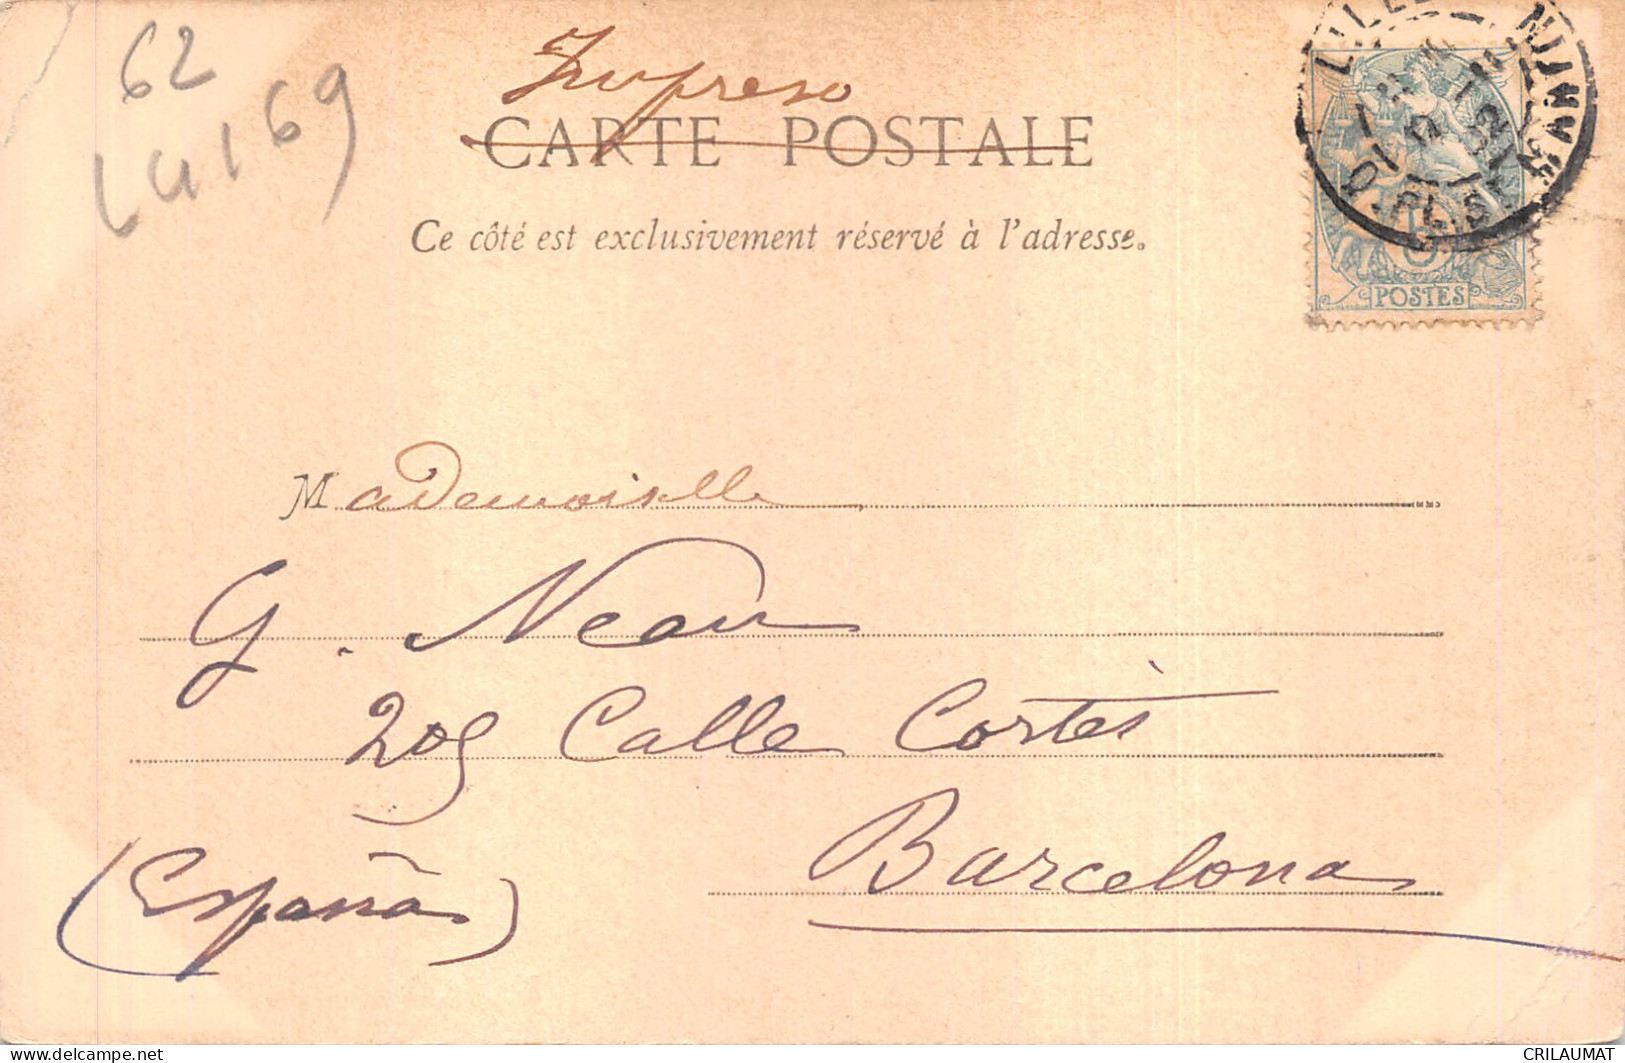 62
L4169
Impreso
CARTE POSTALE
Ce côté est exclusivement réservé à l'adresse.
LILLE
POSTES
Mademoiselle
G. Neau
209 Calle Cortès
Barcelona
(España)
CRILAUMAT